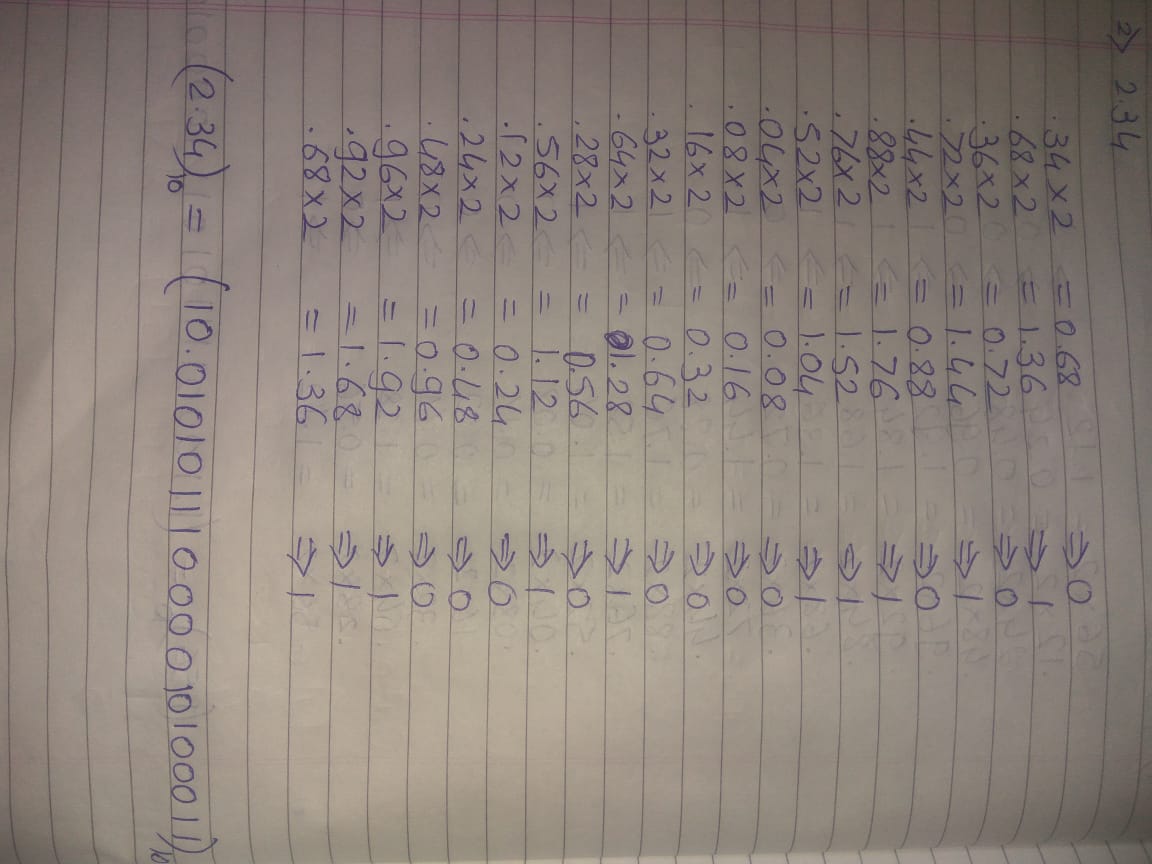 2> 2.34
.34 x 2 = 0.68 ⇒ 0
.68 x 2 = 1.36 ⇒ 1
.36 x 2 = 0.72 ⇒ 0
.72 x 2 = 1.44 ⇒ 1
.44 x 2 = 0.88 ⇒ 0
.88 x 2 = 1.76 ⇒ 1
.76 x 2 = 1.52 ⇒ 1
.52 x 2 = 1.04 ⇒ 1
.04 x 2 = 0.08 ⇒ 0
.08 x 2 = 0.16 ⇒ 0
.16 x 2 = 0.32 ⇒ 0
.32 x 2 = 0.64 ⇒ 0
.64 x 2 = 1.28 ⇒ 1
.28 x 2 = 0.56 ⇒ 0
.56 x 2 = 1.12 ⇒ 1
.12 x 2 = 0.24 ⇒ 0
.24 x 2 = 0.48 ⇒ 0
.48 x 2 = 0.96 ⇒ 0
.96 x 2 = 1.92 ⇒ 1
.92 x 2 = 1.68 ⇒ 1
.68 x 2 = 1.36 ⇒ 1
(2.34)10 = (10.01010111000010100011)10